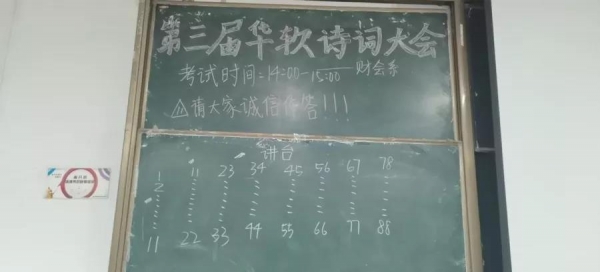 第三届华软诗词大会
考试时间:14:00-15:00 财会系
⚠请大家诚信作答!!!
讲台
1 11 23 34 45 56 67 78
2
11 22 33 44 55 66 77 88